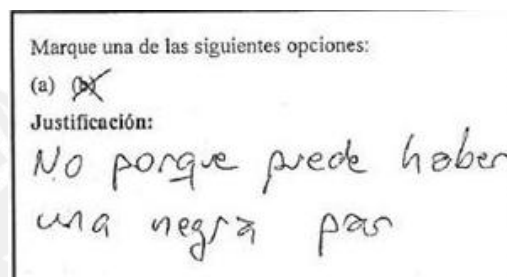 Marque una de las siguientes opciones:
(a) (b)
Justificación:
No porque puede haber
una negra par